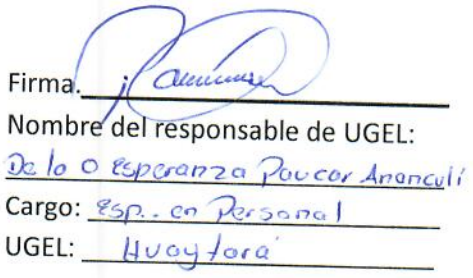 Firma.
Nombre del responsable de UGEL:
De la O Esperanza Paucar Ananculí
Cargo: Esp.. en Personal
UGEL: Huaytará